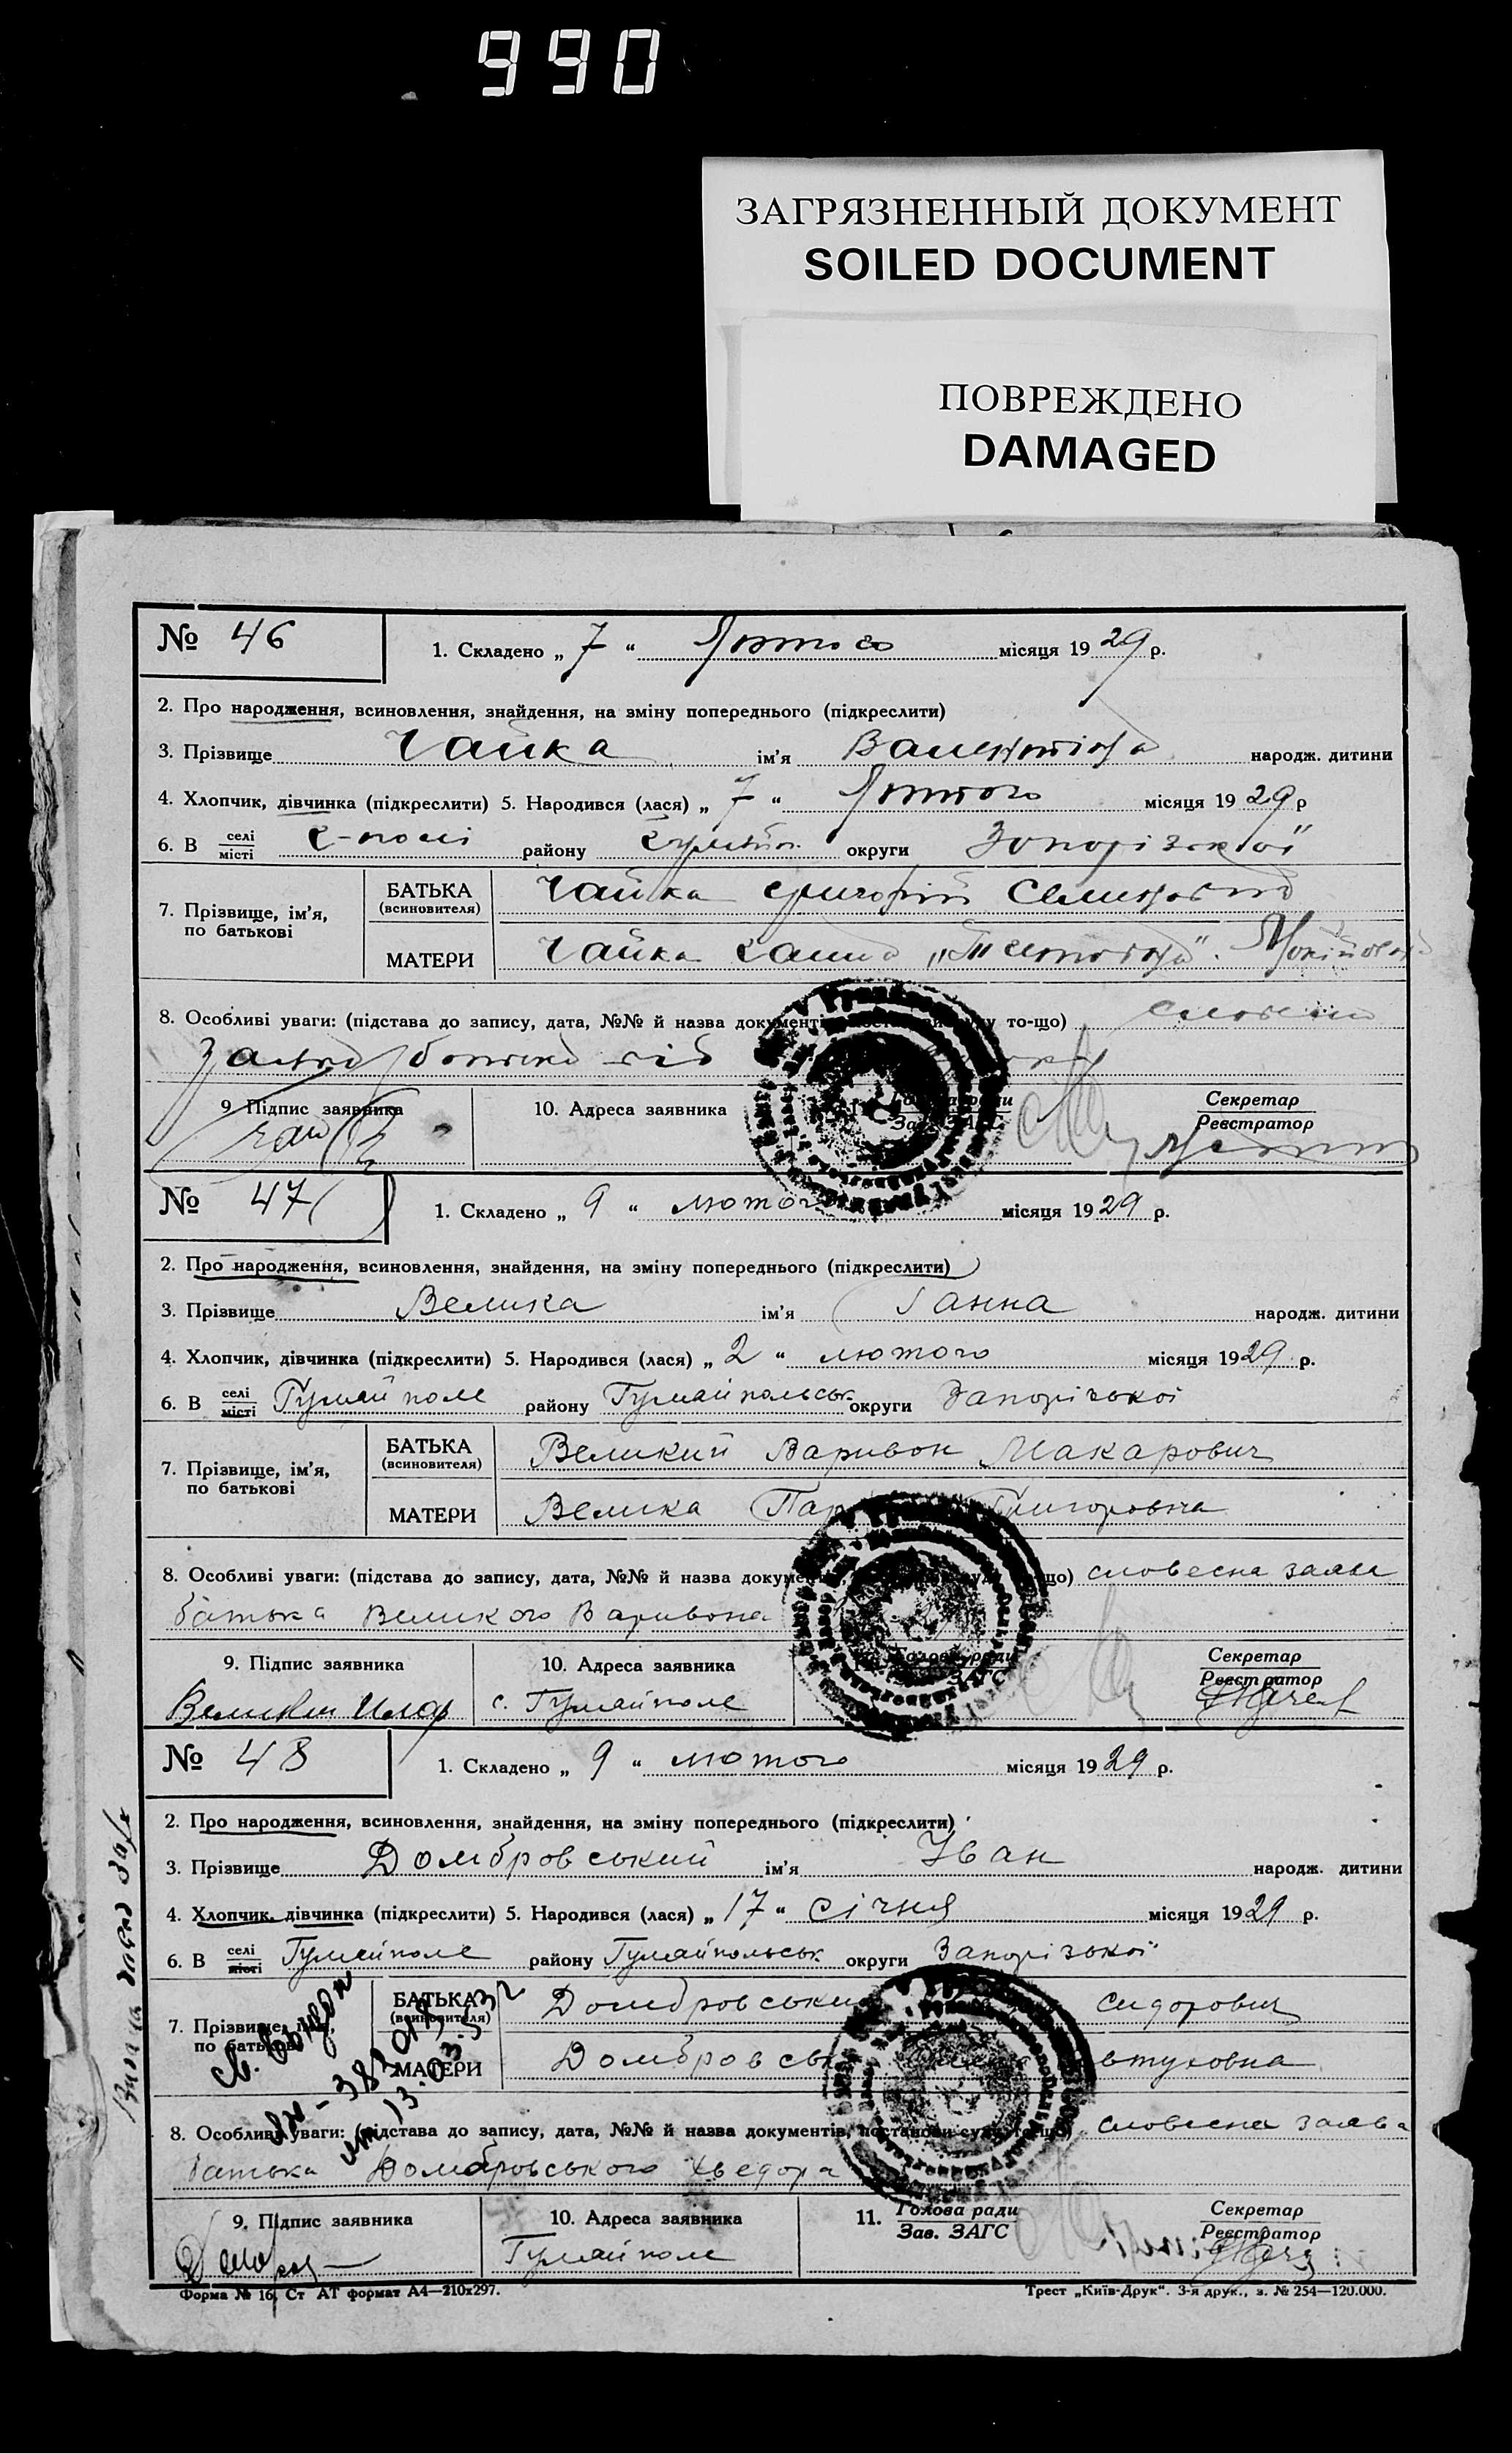 990
ЗАГРЯЗНЕННЫЙ ДОКУМЕНТ
SOILED DOCUMENT
ПОВРЕЖДЕНО
DAMAGED
№ 46
1. Складено „ 7 “ Лютого місяця 1929 р.
2. Про народження, всиновлення, знайдення, на зміну попереднього (підкреслити)
3. Прізвище Чайка ім’я Валентіна народж. дитини
4. Хлопчик, дівчинка (підкреслити) 5. Народився (лася) „ 7 “ Лютого місяця 1929 р
6. В селі місті Г-полі району округи Запорізької
7. Прізвище, ім’я, по батькові
БАТЬКА (всиновителя) Чайка Григорій Семенович
МАТЕРИ Чайка Ганна
8. Особливі уваги: (підстава до запису, дата, №№ й назва то-що) словесна
заява батька
9. Підпис заявника 10. Адреса заявника Секретар Реєстратор
№ 47
1. Складено „ 9 “ лютого місяця 1929 р.
2. Про народження, всиновлення, знайдення, на зміну попереднього (підкреслити)
3. Прізвище Велика ім’я Ганна народж. дитини
4. Хлопчик, дівчинка (підкреслити) 5. Народився (лася) „ 2 “ лютого місяця 1929 р.
6. В селі місті Гуляйполе району Гуляйпольськ округи Запорізької
7. Прізвище, ім’я, по батькові
БАТЬКА (всиновителя) Великий Варивон Макарович
МАТЕРИ Велика Григоровна
8. Особливі уваги: (підстава до запису, дата, №№ й назва словесна заява
батька Великого Варивона
9. Підпис заявника 10. Адреса заявника Голова ради ЗАГС Секретар Реєстратор
с. Гуляйполе
№ 48
1. Складено „ 9 “ лютого місяця 1929 р.
2. Про народження, всиновлення, знайдення, на зміну попереднього (підкреслити)
3. Прізвище Домбровський ім’я Іван народж. дитини
4. Хлопчик, дівчинка (підкреслити) 5. Народився (лася) „ 17 “ січня місяця 1929 р.
6. В селі місті Гуляйполе району Гуляйпольськ округи Запорізької
7. Прізвище, ім’я, по батькові
БАТЬКА (всиновителя) Домбровський Сидорович
МАТЕРИ Домбровська Явтуховна
8. Особливі уваги: (підстава до запису, дата, №№ й назва документів, постанови суду то-що) словесна заява
батька Домбровського Хведора
9. Підпис заявника 10. Адреса заявника 11. Голова ради Зав. ЗАГС Секретар Реєстратор
Гуляйполе
Форма № 16, Ст АТ формат А4—210х297. Трест „Київ-Друк“. 3-я друк., з. № 254—120.000.